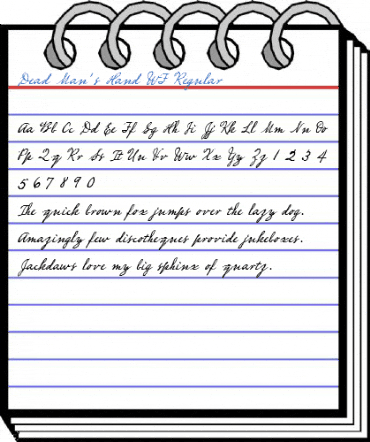 Dead Man's Hand WF Regular
Aa Bb Cc Dd Ee Ff Gg Hh Ii Jj Kk Ll Mm Nn Oo
Pp Qq Rr Ss Tt Uu Vv Ww Xx Yy Zz 1 2 3 4
5 6 7 8 9 0
The quick brown fox jumps over the lazy dog.
Amazingly few discotheques provide jukeboxes.
Jackdaws love my big sphinx of quartz.